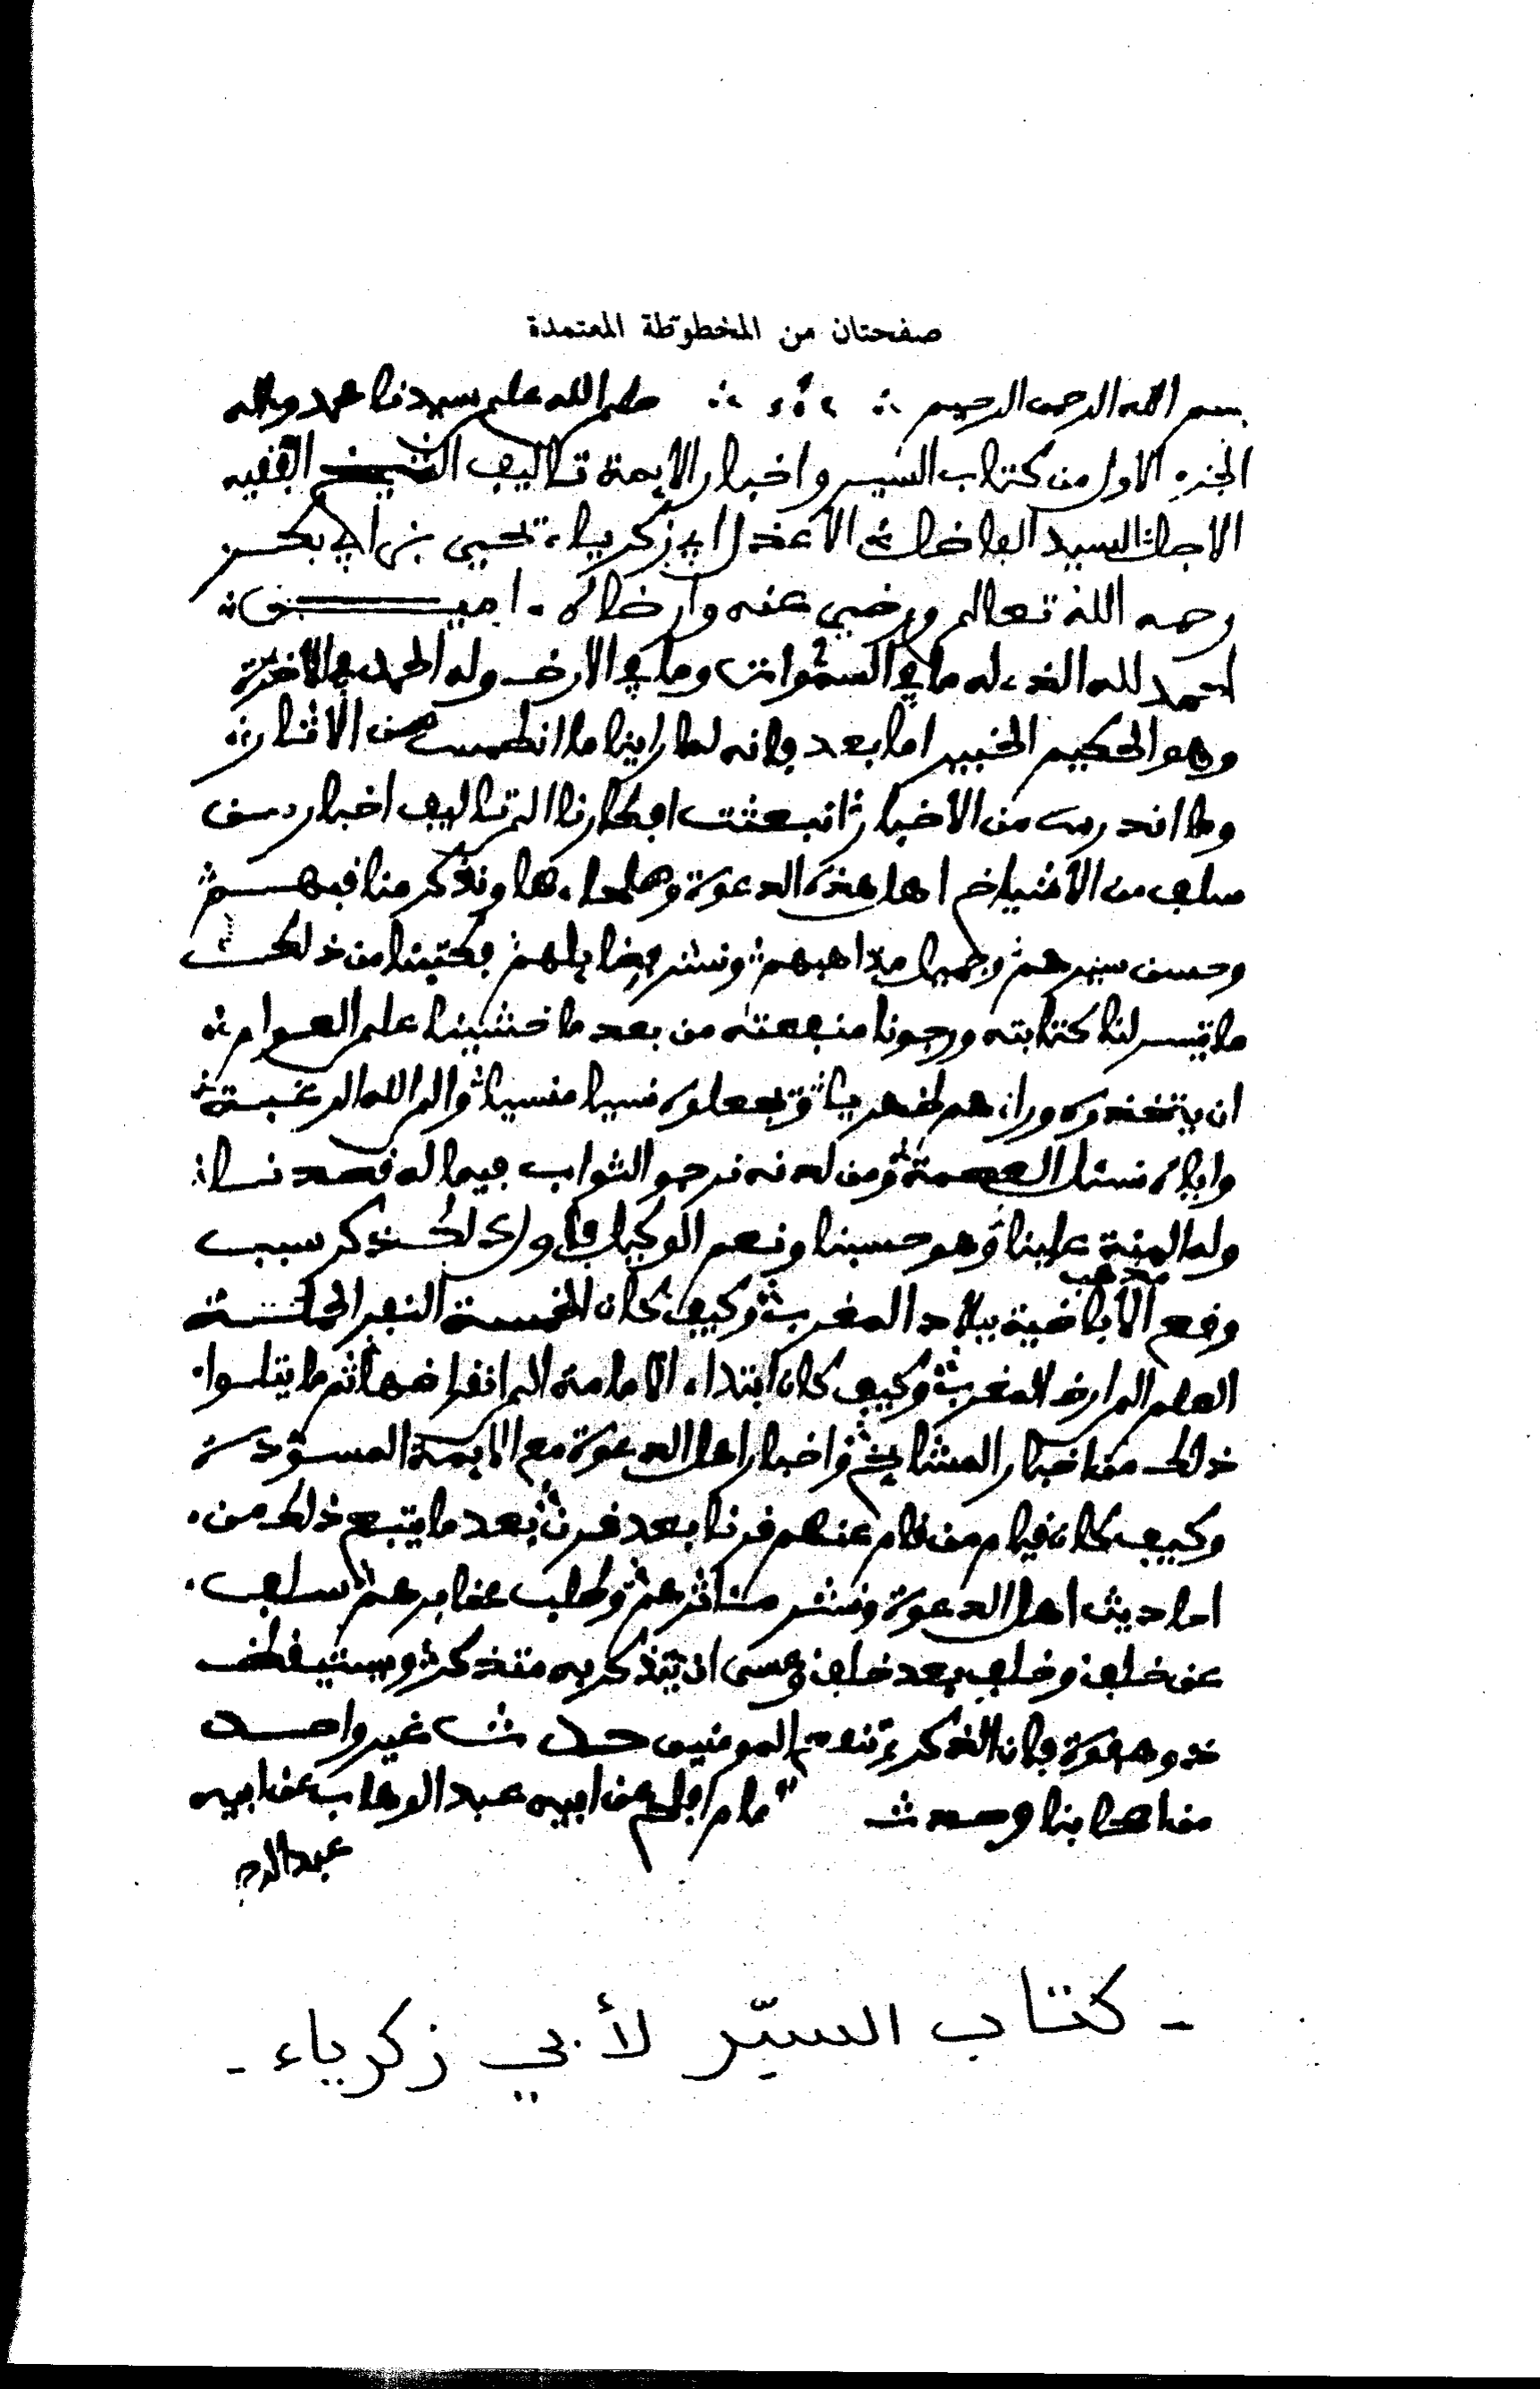 صفحتان من المخطوطة المعتمدة
بسم الله الرحمن الرحيم صلى الله على سيدنا محمد وءاله
الجزء الاول من كتاب السير واخبار الايمة تاليف الشيخ الفقيه
الاجل السيد الفاضل الاعدل ابي زكرياء يحيى بن ابي بكر
رحمه الله تعالى ورضي عنه وارضاه . امين
الحمد لله الذي له ما في السموات وما في الارض وله الحمد في الاخرة
وهو الحكيم الخبير اما بعد فانه لما راينا ما انطمس من الاثار
وما اندرس من الاخبار انبعثت افكارنا الى تاليف اخبار من
سلف من الاشياخ اهل هذه الدعوة وعلماءها ونذكر مناقبهم
وحسن سيرهم وجميل مذاهبهم ونشر فضايلهم فكتبنا من ذلك
ما تيسر لنا كتابته ورجونا منفعته من بعد ما خشينا على العوام
ان يتخذوه وراءهم ظهريا وتجعلوه نسيا منسيا والى الله الرغبة
واياه نسئل العصمة ومن لدنه نرجو الثواب فيما له قصدنا
وله المنة علينا وهو حسبنا ونعم الوكيل فاول ذلك ذكر سبب
مذهب
وقع الاباضية ببلاد المغرب وكيف كان الخمسة النفر الحملة
العلم الى ارض المغرب وكيف كان ابتداء الامامة الى انقراضها ثم ما يتلوا
ذلك من اخبار المشايخ واخبار اهل الدعوة مع الايمة المسودة
وكيف كان قيام من قام عنهم قرنا بعد قرن بعد ما يتبع ذلك من
احاديث اهل الدعوة ونشر مئاثرهم وطلب سلف
عن خلف وخلف بعد خلف وعسى ان يتذكر به متذكر ويستيقظ
ذو هفوة فان الذكرى تنفع المومنين حدث غير واحد
من اصحابنا وحدث مام افلح عن ابيه عبد الوهاب عن ابيه
عبد الرحـ
- كتاب السيّر لأبي زكرياء -